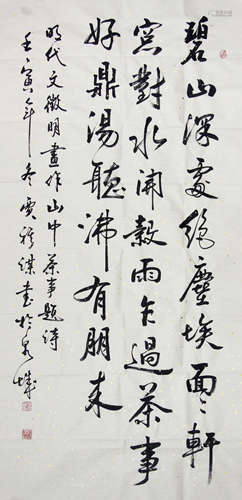 碧山深處絕塵埃面々軒
窓對水開穀雨乍過茶事
好鼎湯聽沸有朋来
明代文徵明畫作山中茶事題詩
壬寅年冬賈祥謀書於泉城